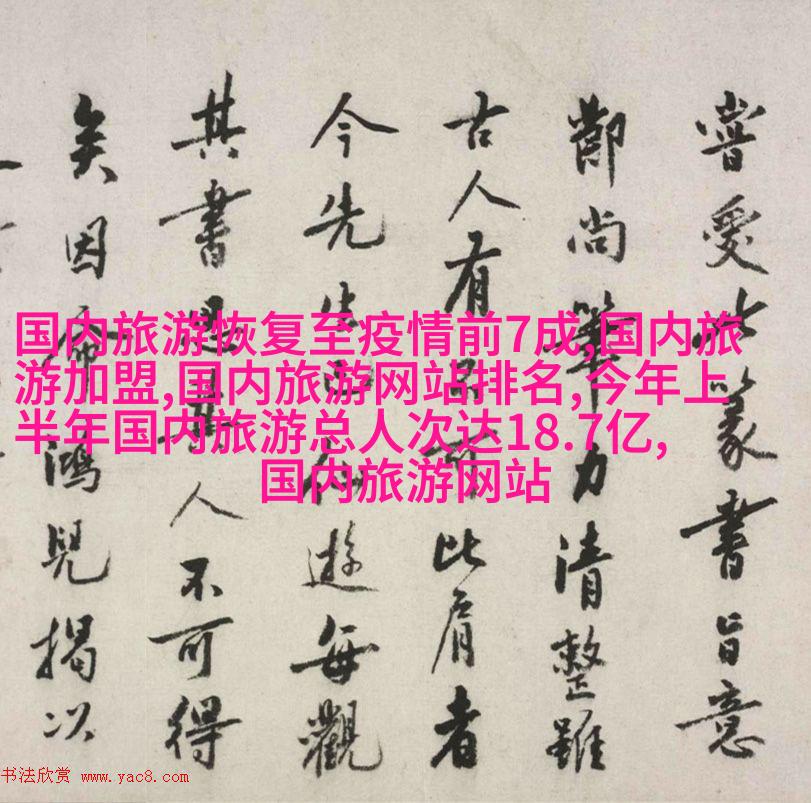 嘗愛此篆書旨意
尚筆力清整雖
古人有可比肩者
今先生遊每觀
其書其人不可得
矣因鴻兒揭以
国内旅游恢复至疫情前7成,国内旅
游加盟,国内旅游网站排名,今年上
半年国内旅游总人次达18.7亿,
国内旅游网站
书法欣赏 www.yac8.com